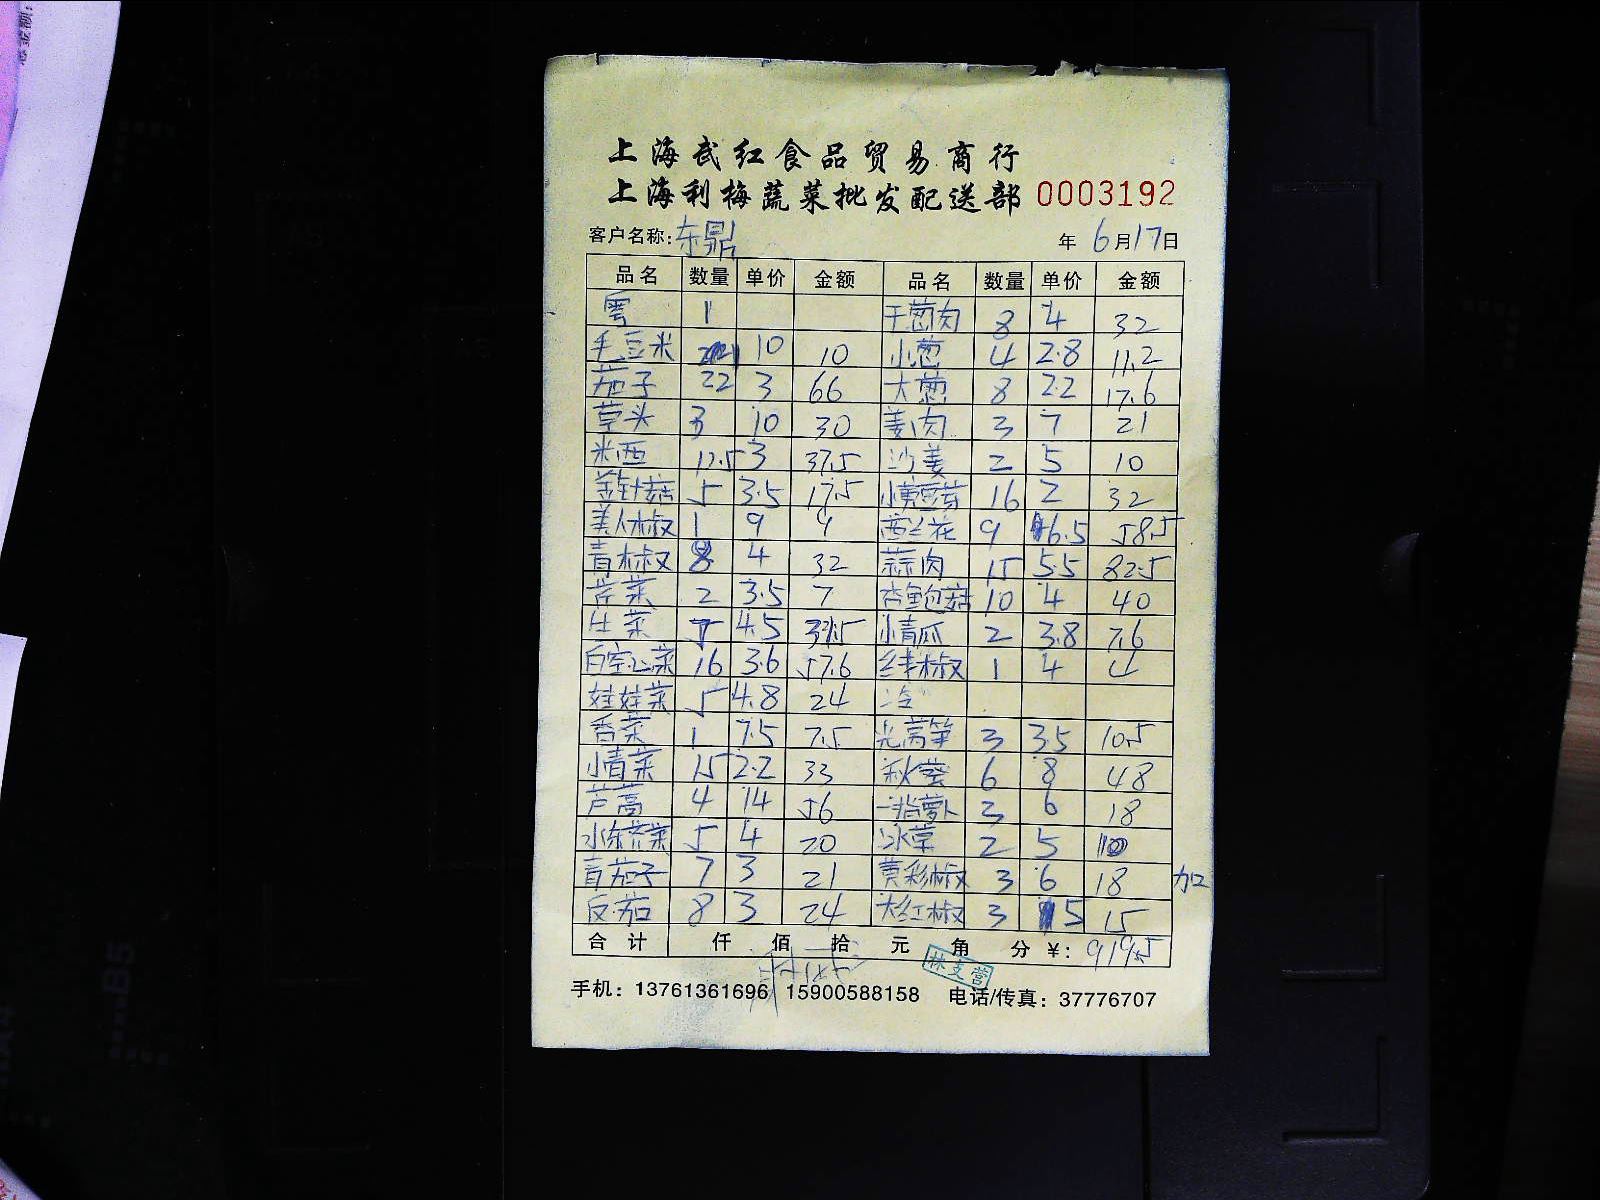 上海武红食品贸易商行
上海利梅蔬菜批发配送部 0003192
客户名称:东鼎 年 6月17日
品名 数量 单价 金额 品名 数量 单价 金额
雪 1 干葱肉 8 4 32
毛豆米 1 10 10 小葱 4 2.8 11.2
茄子 22 3 66 大葱 8 2.2 17.6
草头 3 10 30 姜肉 3 7 21
米西 12.5 3 37.5 沙姜 2 5 10
金针菇 5 3.5 17.5 小黄豆芽 16 2 32
美人椒 1 9 9 西兰花 9 6.5 58.5
青椒 8 4 32 蒜肉 15 5.5 82.5
芹菜 2 3.5 7 杏鲍菇 10 4 40
生菜 4.5 小青瓜 2 3.8 7.6
白空心菜 16 3.6 57.6 红椒 1 4 4
娃娃菜 5 4.8 24
香菜 1 7.5 7.5 光莴笋 3 3.5 10.5
小青菜 15 2.2 33 秋葵 6 8 48
芦蒿 4 14 56 萝卜 3 6 18
水东芥菜 5 4 20 冰草 2 5 10
青茄子 7 3 21 黄彩椒 3 6 18 加
反茄 8 3 24 大红椒 3 5 15
合计 仟 佰 拾 元 角 分 ¥: 919.5
林文营
手机: 13761361696 15900588158 电话/传真: 37776707